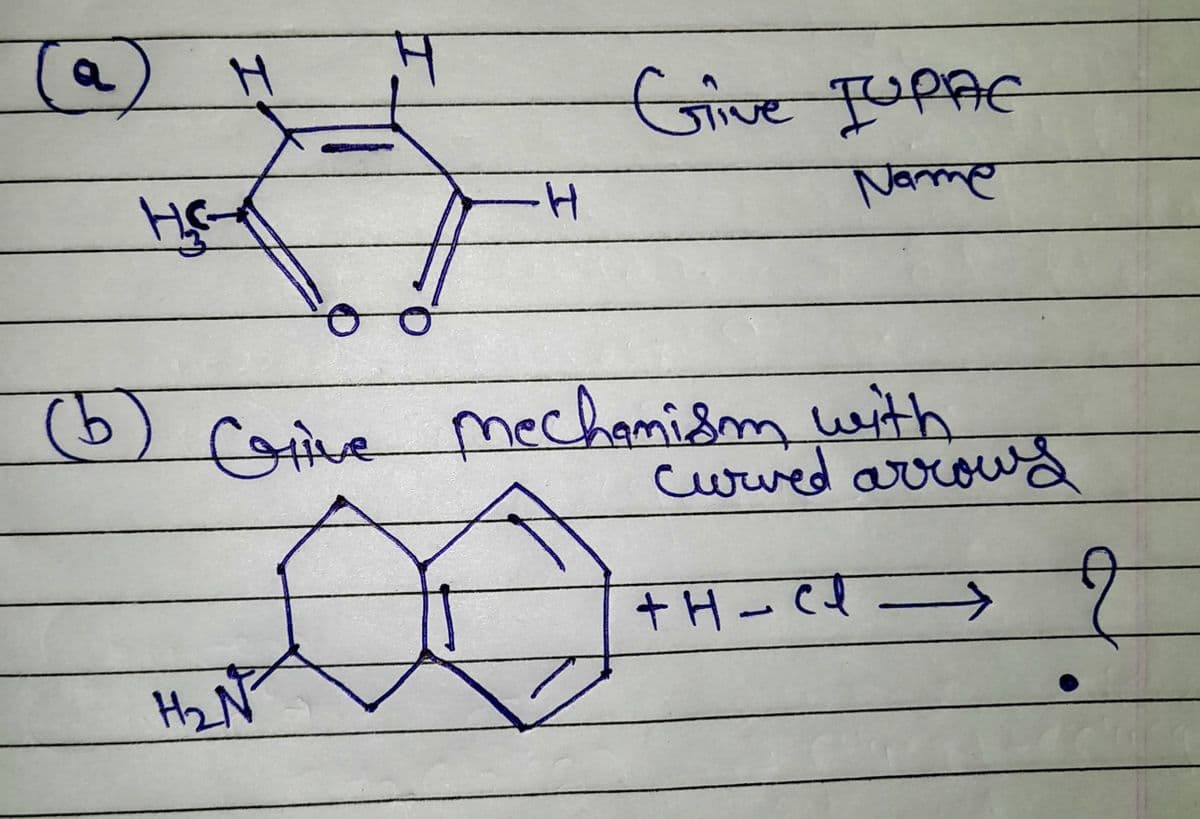 (a) H H Give IUPAC
Name
H3C H
O O
(b) Give mechanism with
curved arrows
+ H - Cl → ?
H2N